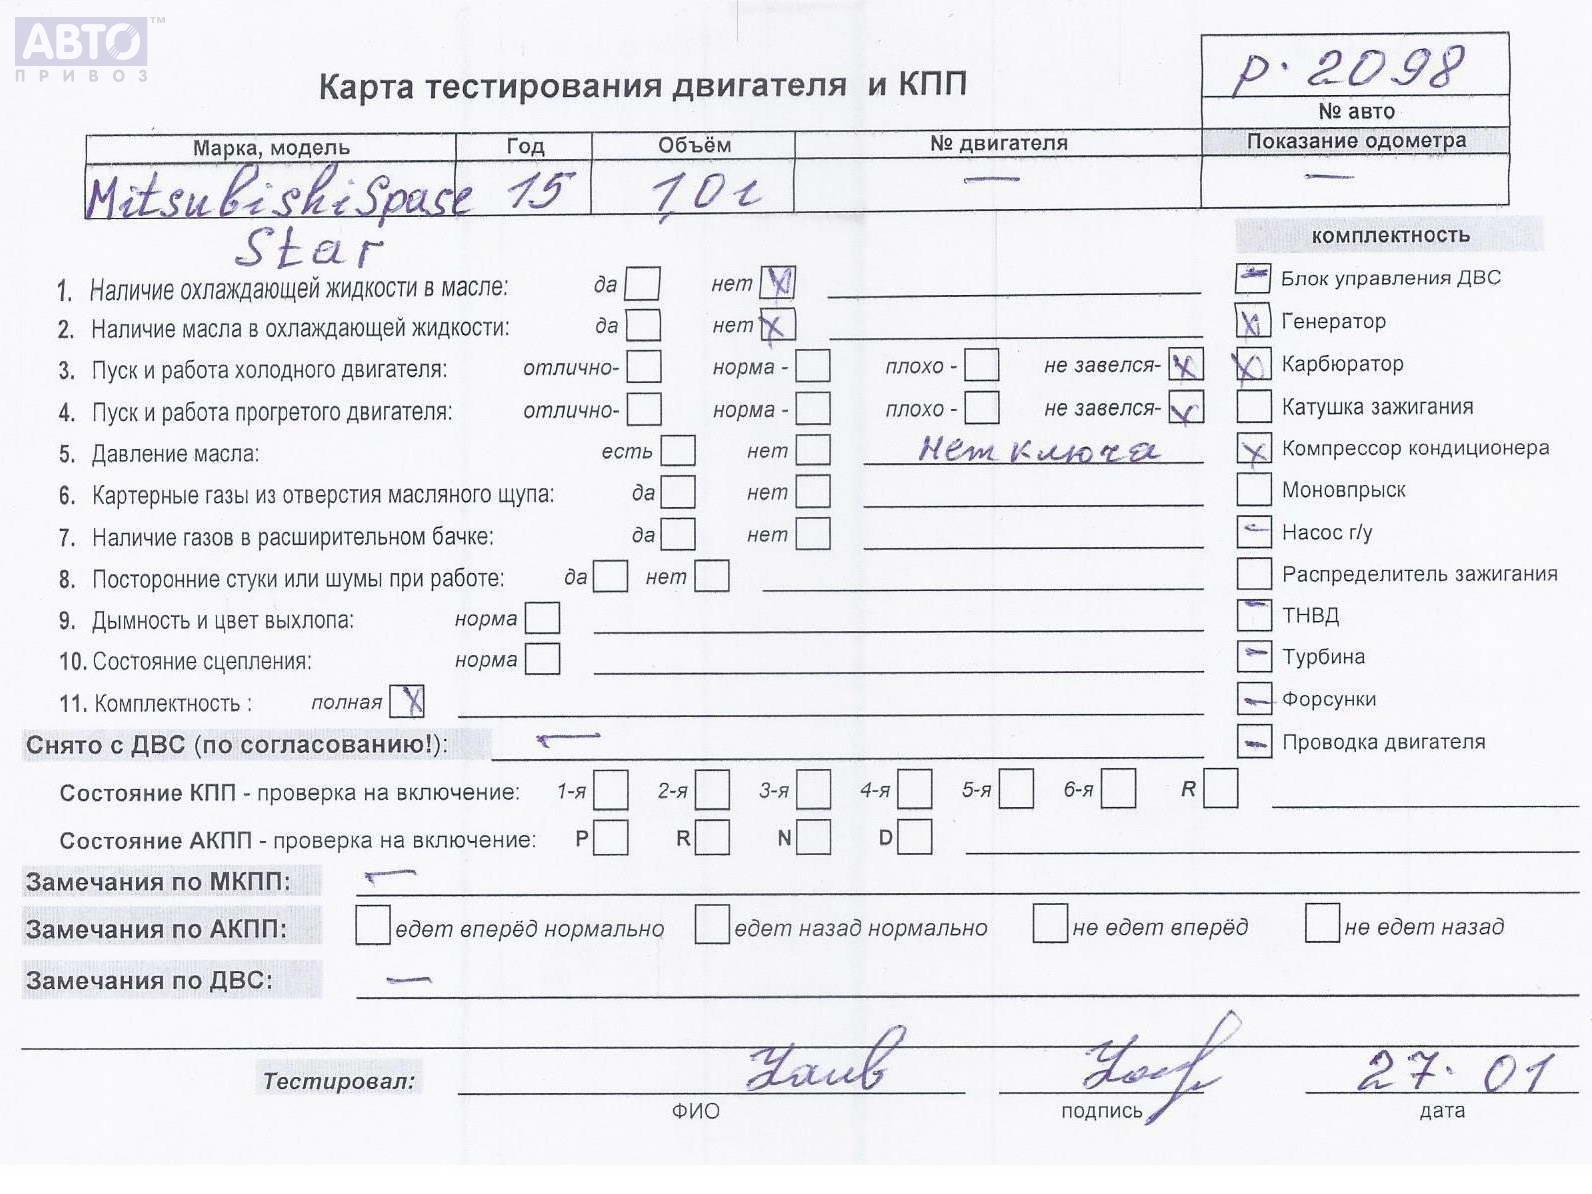 АВТО™
ПРИВОЗ
р. 2098
№ авто
Карта тестирования двигателя и КПП
Марка, модель Год Объём № двигателя Показание одометра
Mitsubishi Spase 15 1,0i — —
Star
комплектность
1. Наличие охлаждающей жидкости в масле: да нет X
Блок управления ДВС
2. Наличие масла в охлаждающей жидкости: да нет X
Генератор
3. Пуск и работа холодного двигателя: отлично- норма - плохо - не завелся- X
Карбюратор
4. Пуск и работа прогретого двигателя: отлично- норма - плохо - не завелся- X
Катушка зажигания
5. Давление масла: есть нет Нет ключа
Компрессор кондиционера
6. Картерные газы из отверстия масляного щупа: да нет
Моновпрыск
7. Наличие газов в расширительном бачке: да нет
Насос г/у
8. Посторонние стуки или шумы при работе: да нет
Распределитель зажигания
9. Дымность и цвет выхлопа: норма
ТНВД
10. Состояние сцепления: норма
Турбина
11. Комплектность : полная X
Форсунки
Снято с ДВС (по согласованию!): —
Проводка двигателя
Состояние КПП - проверка на включение: 1-я 2-я 3-я 4-я 5-я 6-я R
Состояние АКПП - проверка на включение: P R N D
Замечания по МКПП: —
Замечания по АКПП: едет вперёд нормально едет назад нормально не едет вперёд не едет назад
Замечания по ДВС: —
Тестировал: 27.01
ФИО подпись дата